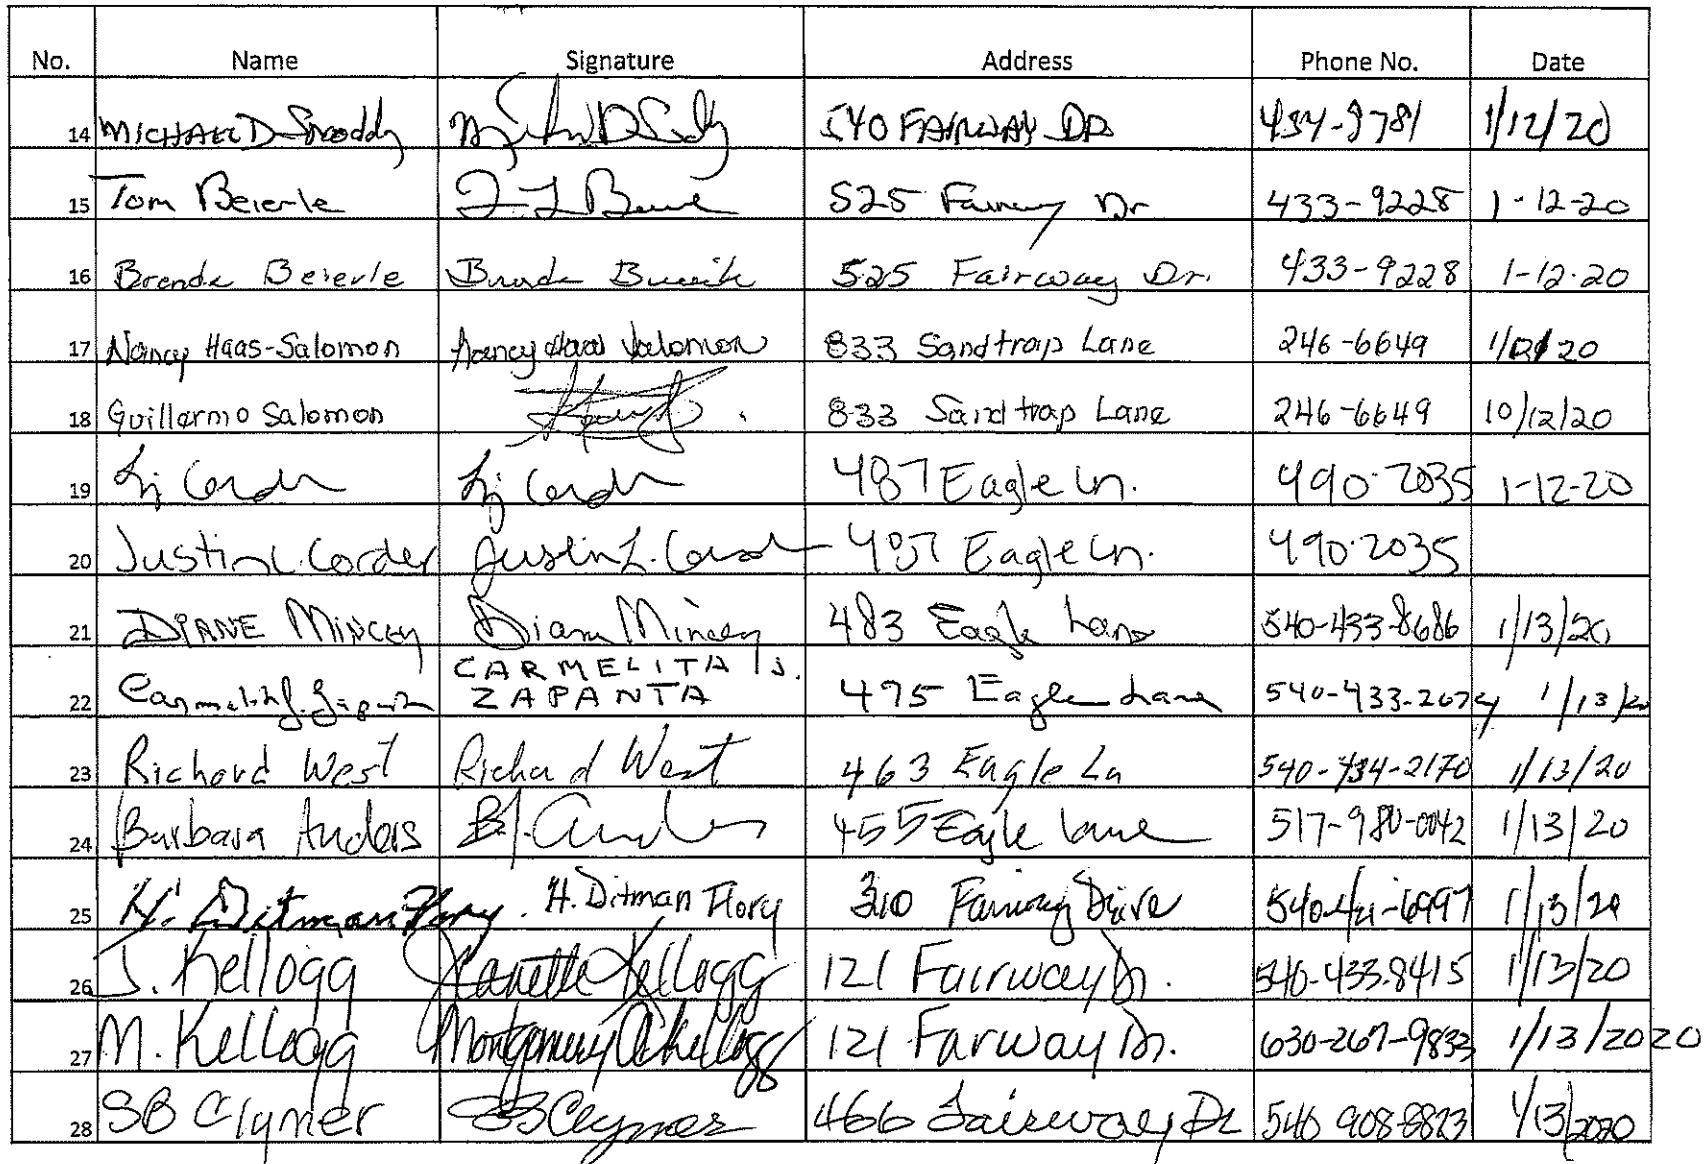 No. Name Signature Address Phone No. Date
14 MICHAEL D Snoddy 540 FAIRWAY DR 434-9781 1/12/20
15 Tom Beierle 525 Fairway Dr 433-9228 1-12-20
16 Brenda Beierle 525 Fairway Dr. 433-9228 1-12-20
17 Nancy Haas-Salomon Nancy Haas Salomon 833 Sandtrap Lane 246-6649
18 Guillermo Salomon 833 Sandtrap Lane 246-6649 10/12/20
19 487 Eagle Ln. 490-2035 1-12-20
20 Justin L. Corder Justin L. 487 Eagle Ln. 490-2035
21 DIANE MINCEY Diane Mincey 483 Eagle Lane 540-433-8686 1/13/20
22 CARMELITA J.
ZAPANTA 475 Eagle Lane 540-433-2674 1/13/20
23 Richard West Richard West 463 Eagle Ln 540-434-2170 1/13/20
24 Barbara Anders B.J. Anders 455 Eagle Lane 517-980-0042 1/13/20
25 H. Ditman Flory. H. Ditman Flory 310 Fairway Drive 1/13/20
26 J. Kellogg Janette Kellogg 121 Fairway Dr. 540-433-8415 1/13/20
27 M. Kellogg Montgomery Kellogg 121 Farway Dr. 630-267-9833 1/13/2020
28 SB Clymer SB Clymer 466 Fairway Dr 540 908-8823 1/13/2020